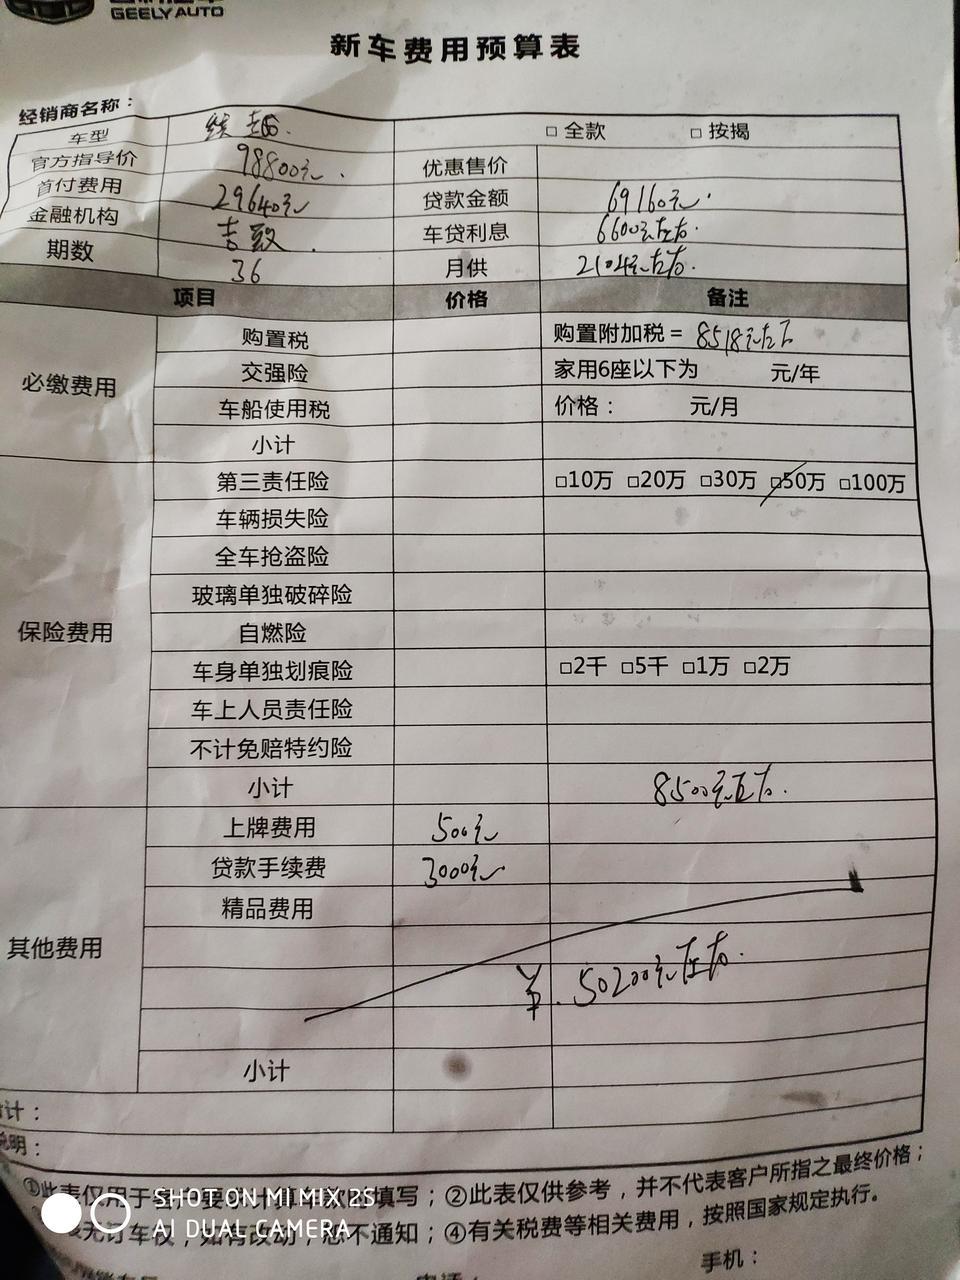 GEELY AUTO
新车费用预算表
经销商名称：
车型 □ 全款 □ 按揭
官方指导价 98800元. 优惠售价
首付费用 29640元 贷款金额 69160元.
金融机构 吉致. 车贷利息 6600元左右.
期数 36 月供 2104元左右.
项目 价格 备注
必缴费用
购置税 购置附加税＝ 8518元左右
交强险 家用6座以下为 元/年
车船使用税 价格： 元/月
小计
第三责任险 □10万 □20万 □30万 □50万 □100万
车辆损失险
全车抢盗险
玻璃单独破碎险
保险费用
自燃险
车身单独划痕险 □2千 □5千 □1万 □2万
车上人员责任险
不计免赔特约险
小计 8500元左右.
上牌费用 500元
贷款手续费 3000元
精品费用
其他费用
¥. 50200元左右.
小计
计：
明：
①此表仅用于 填写；②此表仅供参考，并不代表客户所指之最终价格；
如有改动，恕不通知；④有关税费等相关费用，按照国家规定执行。
手机：
SHOT ON MI MIX 2S
AI DUAL CAMERA